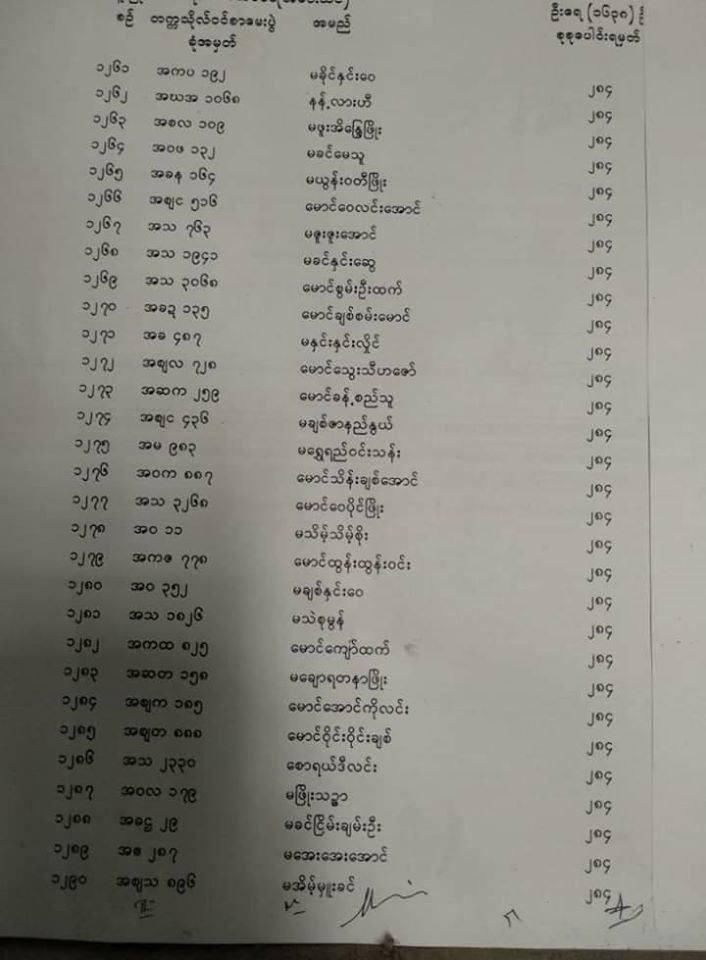 ဦးရေ (၁၆၃၈) ဦ
စဉ် တက္ကသိုလ်ဝင်စာမေးပွဲ အမည် စုစုပေါင်းရမှတ်
ခုံအမှတ်
၁၂၆၁ အကပ ၁၉၂ မခိုင်နှင်းဝေ ၂၈၄
၁၂၆၂ အဃအ ၁၀၆၈ နန့်လားဟီ ၂၈၄
၁၂၆၃ အစလ ၁၀၉ မဖူးအိန္ဒြေဖြိုး ၂၈၄
၁၂၆၄ အဝဖ ၁၃၂ မခင်မေသူ ၂၈၄
၁၂၆၅ အခန ၁၆၄ မယွန်းဝတီဖြိုး ၂၈၄
၁၂၆၆ အဈင ၅၁၆ မောင်ဝေလင်းအောင် ၂၈၄
၁၂၆၇ အသ ၇၆၃ မဇူးဇူးအောင် ၂၈၄
၁၂၆၈ အသ ၁၉၄၁ မခင်နှင်းဆွေ ၂၈၄
၁၂၆၉ အသ ၃၀၆၈ မောင်စွမ်းဦးထက် ၂၈၄
၁၂၇၀ အခဍ ၁၃၅ မောင်ချစ်စမ်းမောင် ၂၈၄
၁၂၇၁ အခ ၄၈၇ မနှင်းနှင်းလှိုင် ၂၈၄
၁၂၇၂ အဈလ ၇၂၈ မောင်သွေးသီဟဇော် ၂၈၄
၁၂၇၃ အဆက ၂၅၉ မောင်ခန့်စည်သူ ၂၈၄
၁၂၇၄ အဈင ၄၃၆ မချစ်ဇာနည်နွယ် ၂၈၄
၁၂၇၅ အမ ၉၈၃ မရွှေရည်ဝင်းသန်း ၂၈၄
၁၂၇၆ အဝက ၈၈၇ မောင်သိန်းချစ်အောင် ၂၈၄
၁၂၇၇ အသ ၃၂၆၈ မောင်ဝေပိုင်ဖြိုး ၂၈၄
၁၂၇၈ အဝ ၁၁ မသိမ့်သိမ့်စိုး ၂၈၄
၁၂၇၉ အကဇ ၇၇၈ မောင်ထွန်းထွန်းဝင်း ၂၈၄
၁၂၈၀ အဝ ၃၅၂ မချစ်နှင်းဝေ ၂၈၄
၁၂၈၁ အသ ၁၈၂၆ မသဲစုမွန် ၂၈၄
၁၂၈၂ အကထ ၈၂၅ မောင်ကျော်ထက် ၂၈၄
၁၂၈၃ အဆတ ၁၅၈ မချောရတနာဖြိုး ၂၈၄
၁၂၈၄ အဈက ၁၈၅ မောင်အောင်ကိုလင်း ၂၈၄
၁၂၈၅ အဈတ ၈၈၈ မောင်ဝိုင်းဝိုင်းချစ် ၂၈၄
၁၂၈၆ အသ ၂၃၃၀ စောရယ်ဒီလင်း ၂၈၄
၁၂၈၇ အဝလ ၁၇၉ မဖြိုးသဥ္ဇာ ၂၈၄
၁၂၈၈ အခဌ ၂၉ မခင်ငြိမ်းချမ်းဦး ၂၈၄
၁၂၈၉ အဓ ၂၈၇ မအေးအေးအောင် ၂၈၄
၁၂၉၀ အဈသ ၈၉၆ မအိမ့်မှူးခင် ၂၈၄